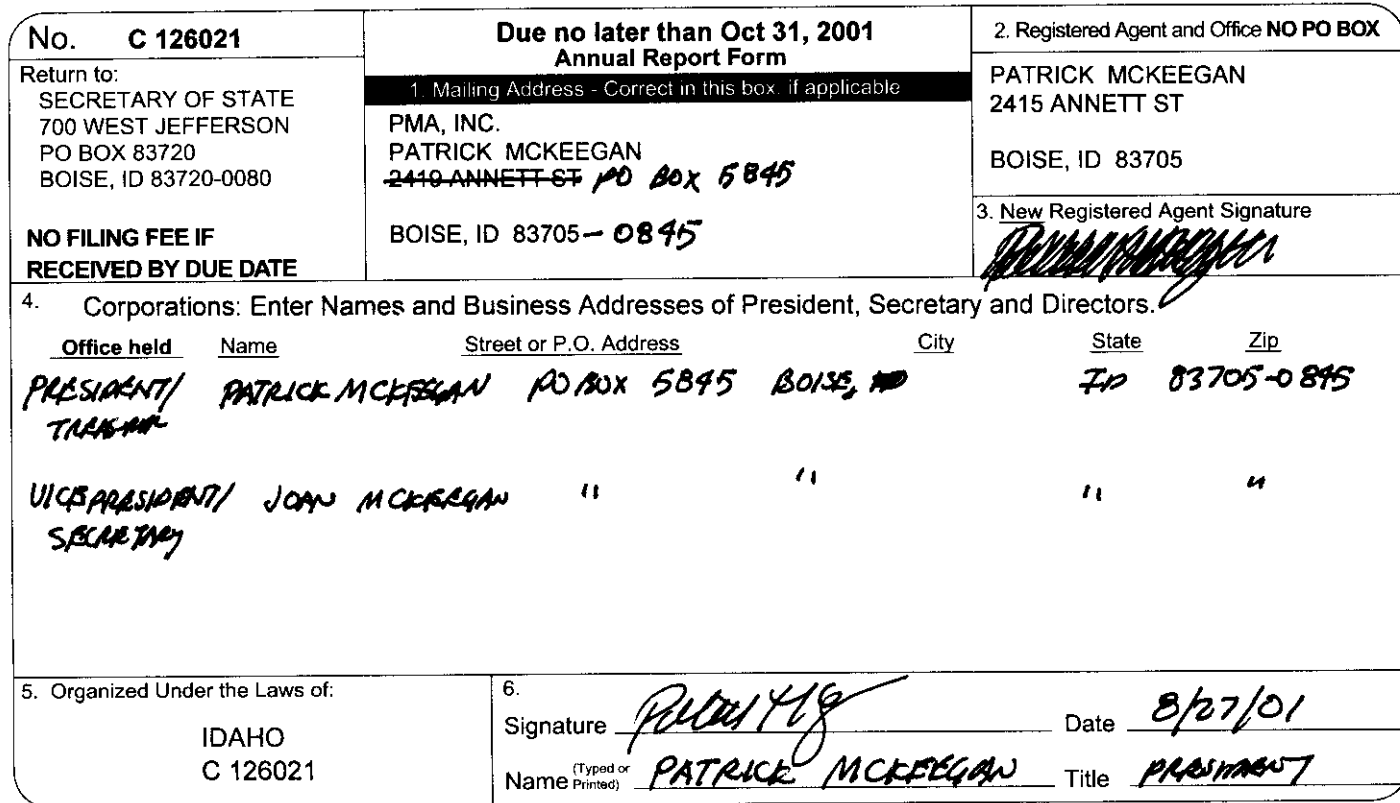 No. C 126021
Return to:
SECRETARY OF STATE
700 WEST JEFFERSON
PO BOX 83720
BOISE, ID 83720-0080
NO FILING FEE IF
RECEIVED BY DUE DATE
Due no later than Oct 31, 2001
Annual Report Form
1. Mailing Address - Correct in this box, if applicable
PMA, INC.
PATRICK MCKEEGAN
2419 ANNETT ST PO BOX 5845
BOISE, ID 83705-0845
2. Registered Agent and Office NO PO BOX
PATRICK MCKEEGAN
2415 ANNETT ST
BOISE, ID 83705
3. New Registered Agent Signature
4. Corporations: Enter Names and Business Addresses of President, Secretary and Directors.
Office held Name Street or P.O. Address City State Zip
PRESIDENT/ PATRICK MCKEEGAN PO BOX 5845 BOISE, ID 83705-0845
VICE PRESIDENT/ JOAN MCKEEGAN " " " "
SECRETARY
5. Organized Under the Laws of:
IDAHO
C 126021
6.
Signature Date 8/27/01
Name (Typed or Printed) PATRICK MCKEEGAN Title PRESIDENT